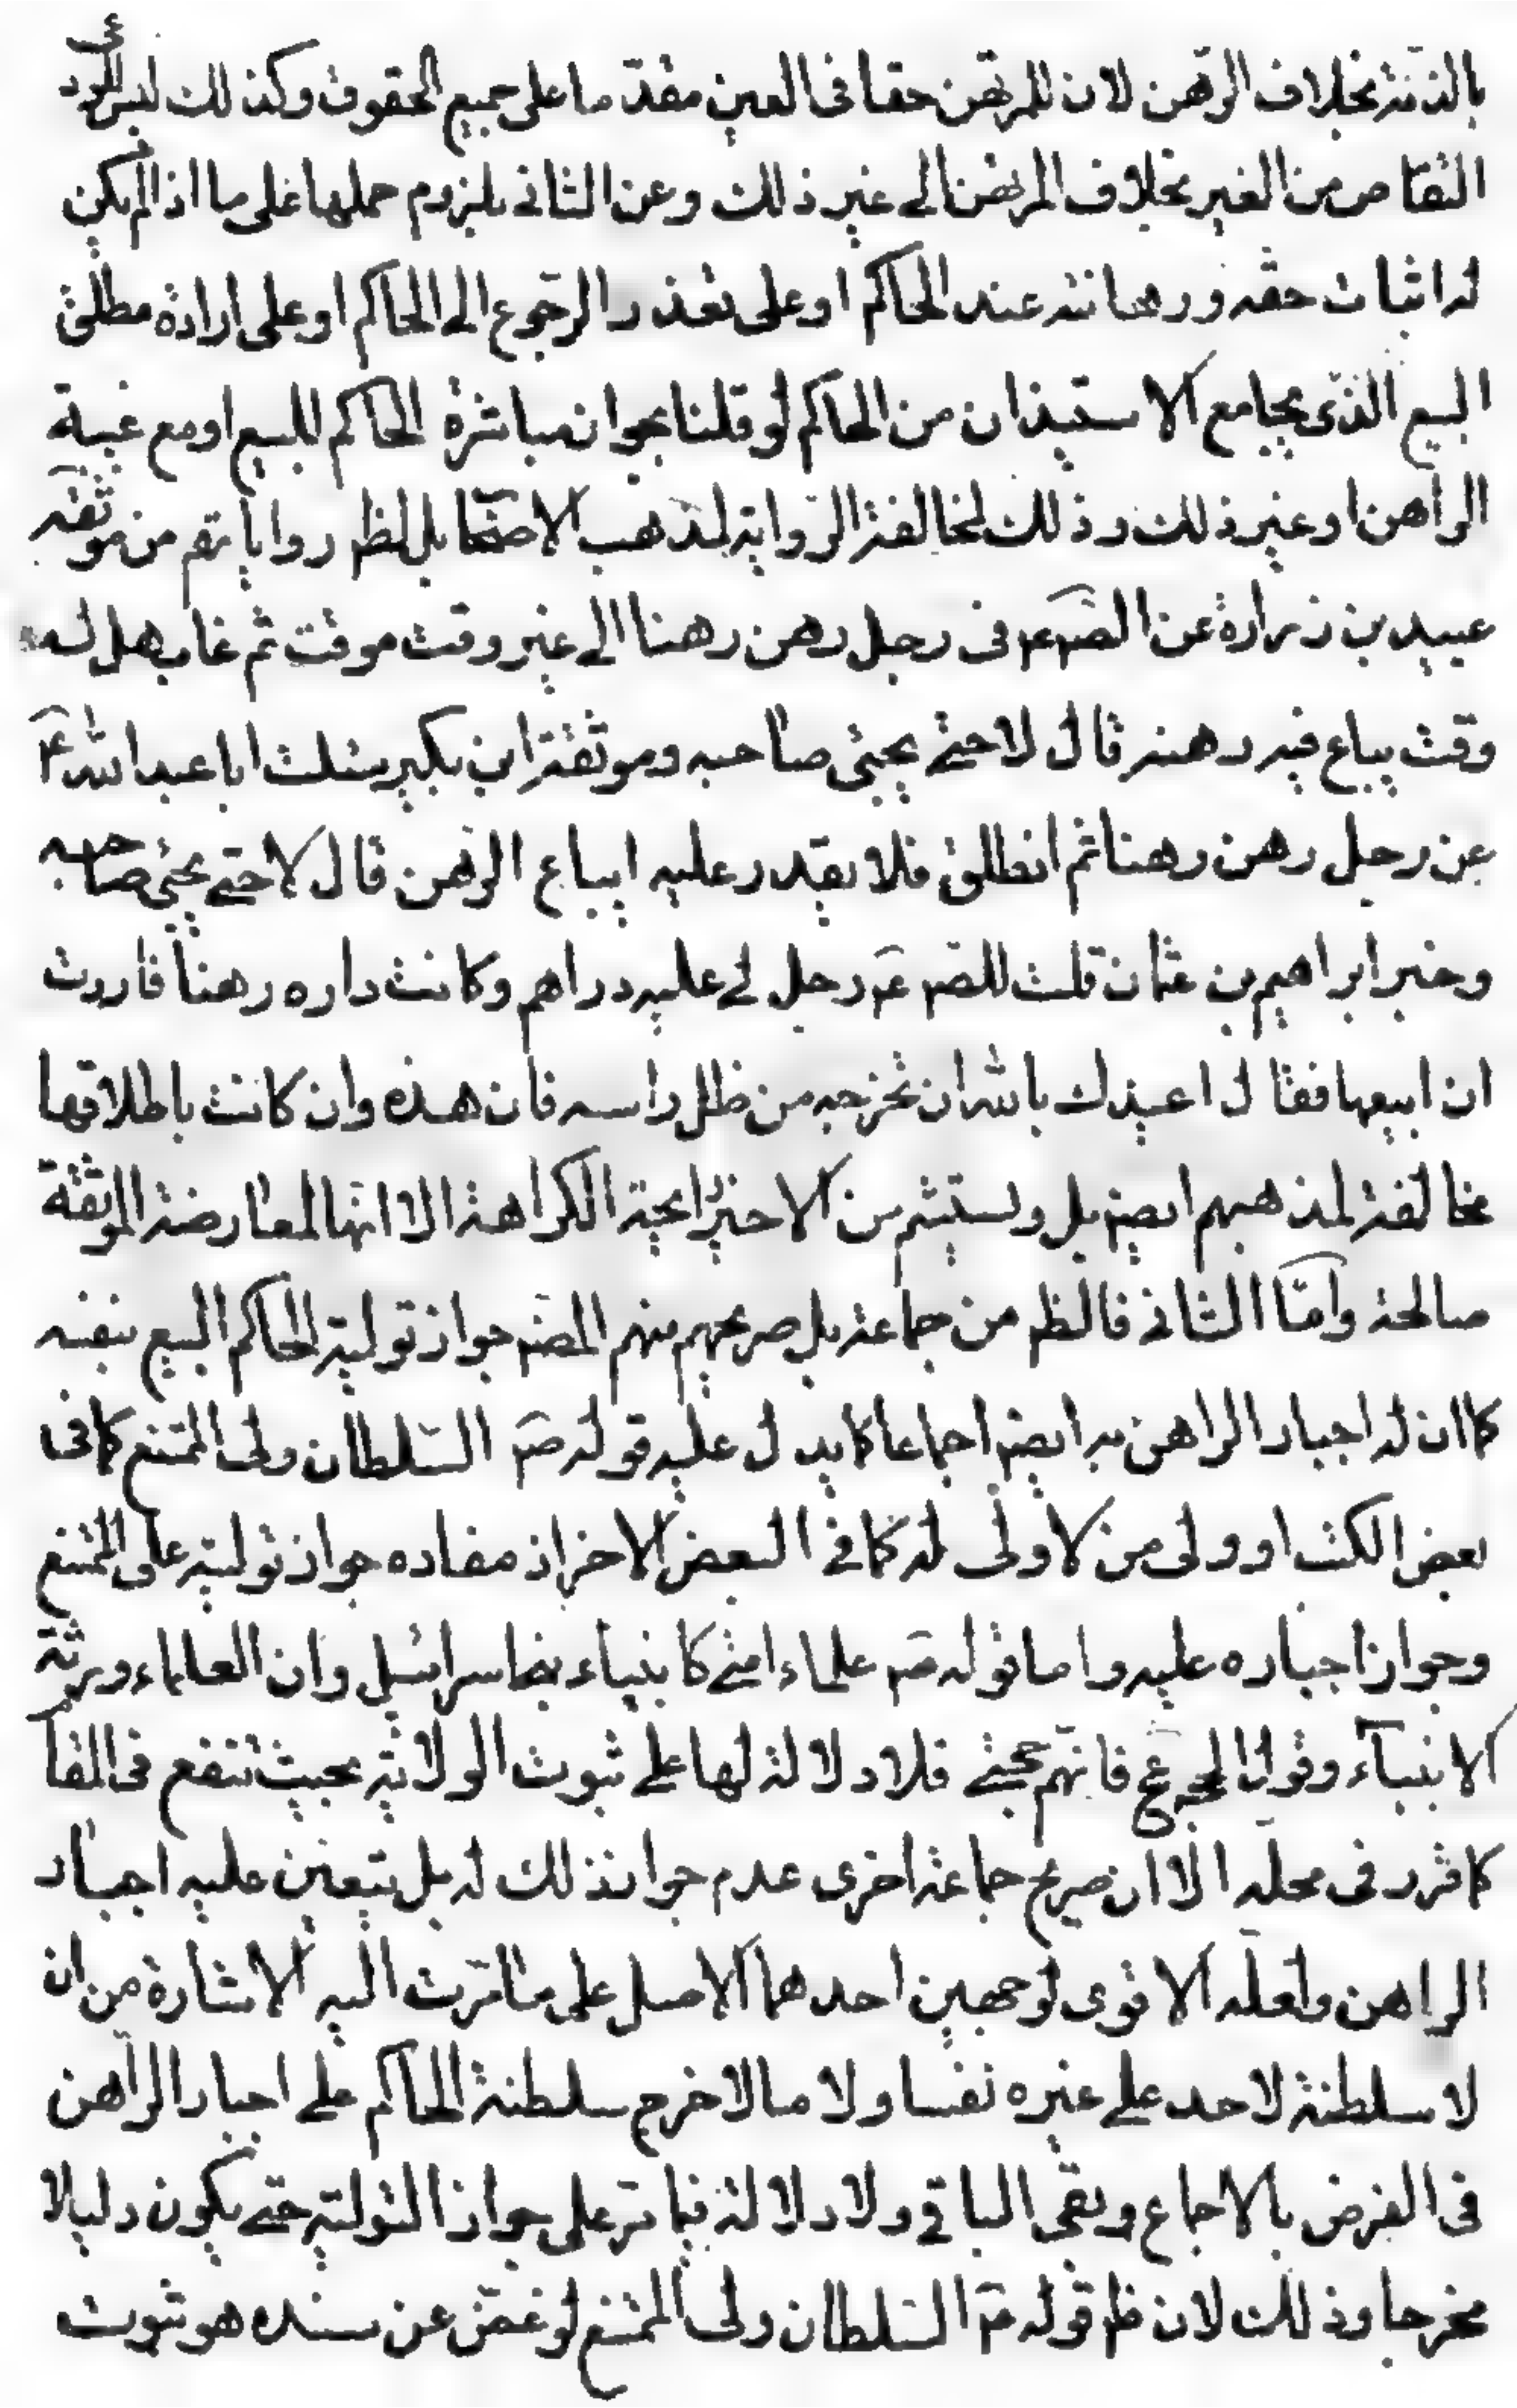 بالذمّة بخلاف الرّهن لان للمرتهن حقا فى العين مقدّما على جميع الحقوق وكذلك ليس للمرء
التقاص من الغير بخلاف المرتهن الى غير ذلك وعن الثانى بلزوم حملها على ما اذا لم يكن
له اثبات حقه ورهانته عند الحاكم او على تعذر الرّجوع الى الحاكم او على ارادة مطلق
البيع الذّى يجامع الاستيذان من الحاكم لو قلنا بجواز مباشرة الحاكم للبيع او مع غيبة
الراهن او غير ذلك وذلك لمخالفة الرّواية لمذهب الاصحٰا بل لظم روايات من موثقة
عبيد بن زرارة عن الصّم عم فى رجل رهن رهنا الى غير وقت موقت ثم غاب هل له
وقت يباع فيه رهنه قال لا حتى يجيئ صاحبه وموثقة ابن بكير سئلت ابا عبد الله ع
عن رجل رهن رهنا ثم انطلق فلا يقدر عليه ايباع الرّهن قال لا حتى يجئ صاحبه
وخبر ابراهيم بن عثمان قلت للصّم عم رجل لى عليه دراهم وكانت داره رهنا فاردت
ان ابيعها فقال اعيذك بالله ان تخرجه من ظل راسه فان هذه وان كانت باطلاقها
مخالفة لمذهبهم ايضم بل ويستشم من الاخير رايحة الكراهة الا انها لمعارضة الموثقة
صالحة وامّا الثانى فالظم من جماعة بل صريحهم منهم المضم جواز تولية الحاكم البيع بنفسه
كما ان له اجبار الراهن به ايضم اجماعا كما يدل عليه قوله صم السّلطان ولى الممتنع كما فى
بعض الكتب او ولى من لا ولى له كما فى البعض الاخر اذ مفاده جواز توليته على الممتنع
وجواز اجباره عليه واما قوله صم علماء امتى كانبياء بنى اسرائيل وان العلماء ورثة
الانبياء وقول الحجة عج فانهم حجتى فلا دلالة لها على ثبوت الولاية بحيث تنفع فى المقا
كما قرر فى محله الّا ان صريح جماعة اخرى عدم جواز ذلك له بل يتعين عليه اجبار
الراهن ولعله الاقوى لوجهين احدهما الاصل على ما مرّت اليه الاشارة من ان
لا سلطنة لاحد على غيره نفسا ولا مالا خرج سلطنة الحاكم على اجبار الراهن
فى الفرض بالاجماع وبقى الباقى ولا دلالة فيما مر على جواز التولية حتى يكون دليلا
مخرجا وذلك لان ظم قوله صم السّلطان ولى الممتنع لو غمض عن سنده هو ثبوت